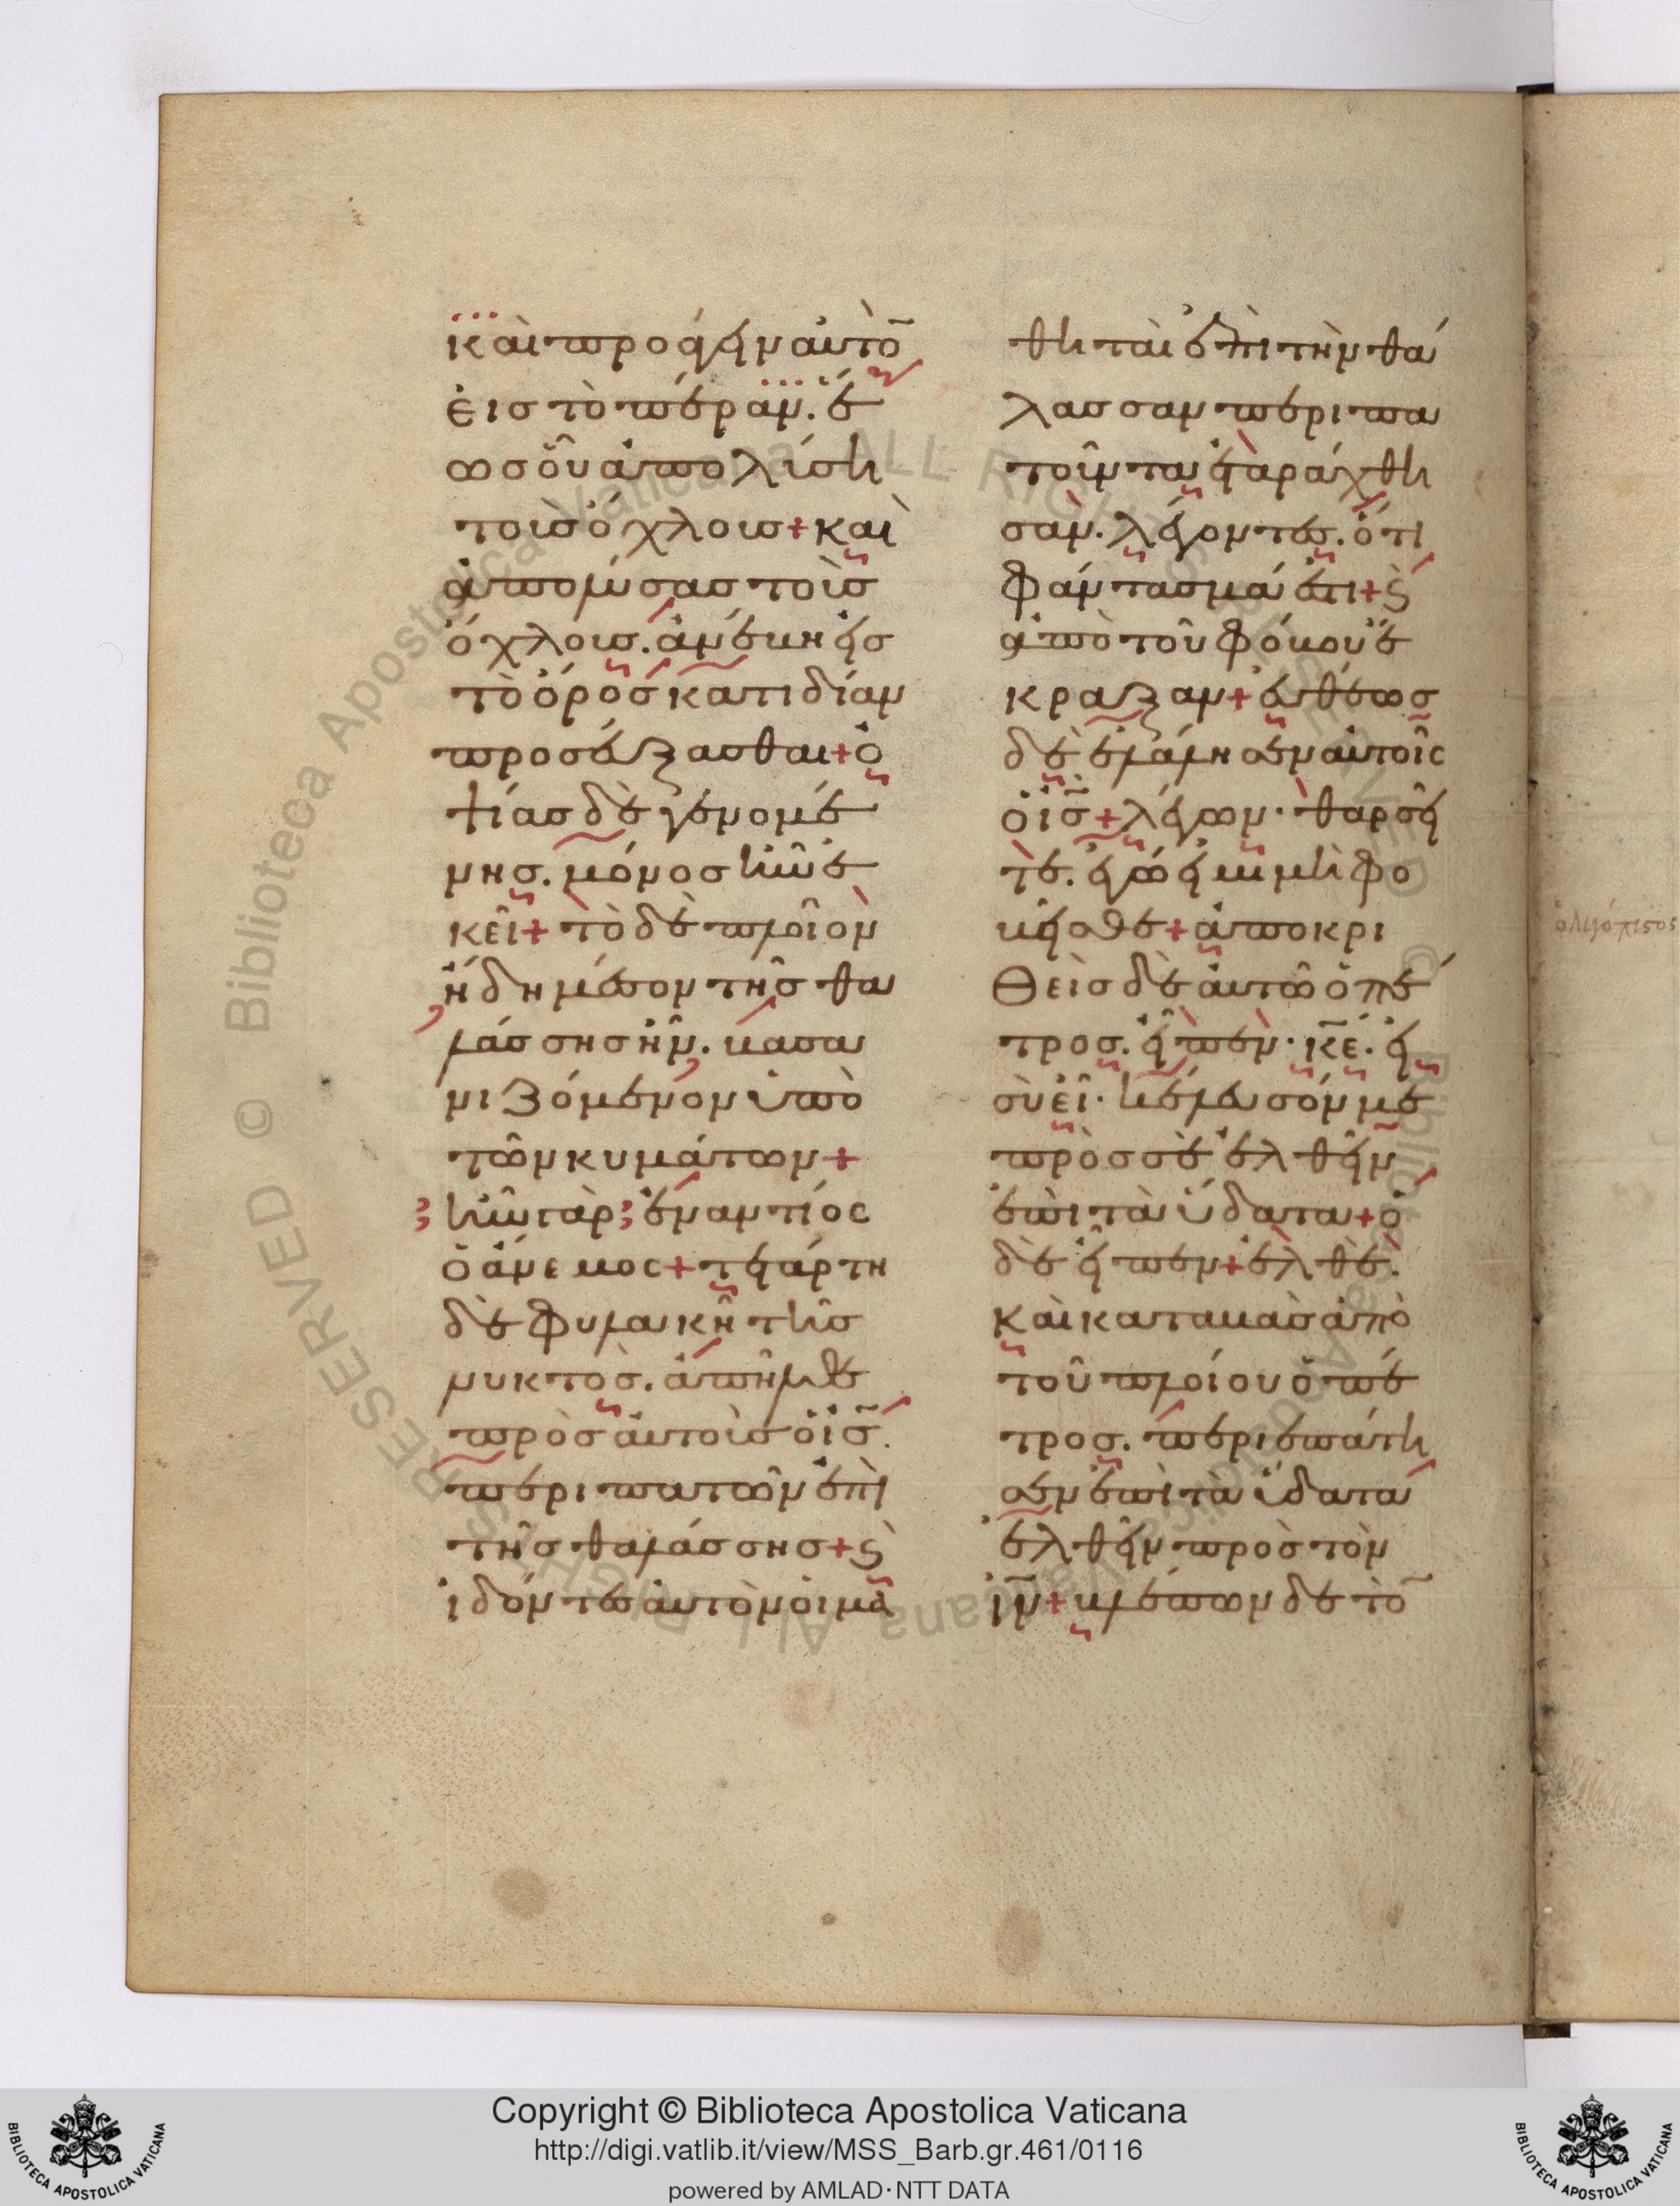 καὶ προάγειν αὐτὸ̅
εἰς τὸ πέραν. ἕ
ως οὗ ἀπολύση
τοὺς ὄχλους + καὶ
ἀπολύσας τοὺς
ὄχλους. ἀνέβη εἰς
τὸ ὄρος κατιδίαν
προσεύξασθαι + ὀ
ψίας δὲ γενομέ
νης. μόνος ἦν ἐ
κεῖ + τὸ δὲ πλοῖον
ἤδη μέσον τῆς θα
λάσσης ἦν. βασα
νιζόμενον ὑπὸ
τῶν κυμάτων +
ἦν γὰρ ἐναντίος
ὁ ἄνεμος + τετάρτη
δὲ φυλακῆ τῆς
νυκτὸς. ἀπῆλθε
πρὸς αὐτοὺς ὁ ἰς̅.
περιπατῶν ἐπὶ
τῆς θαλάσσης + ϛ̀
ἰδόντες αὐτὸν οἱ μα
θηταὶ ἐπὶ τὴν θά
λασσαν περιπα
τοῦντα ἐταράχθη
σαν. λέγοντες. ὅτι
φάντασμά ἐστι + ϛ̀
ἀπὸ τοῦ φόβου ἔ
κραξαν + εὐθέως
δὲ ἐλάλησεν αὐτοῖς
ὁ ἰς̅ + λέγων· θαρσεῖ
τε. ἐγώ εἰμι μὴ φο
βεῖσθε + ἀποκρι
θεὶς δὲ αὐτῶ ὁ πέ
τρος. εἶπεν· κ̅ε̅. εἰ
σὺ εἶ· κέλευσόν με
πρὸς σὲ ἐλθεῖν
ἐπὶ τὰ ὕδατα + ὁ
δὲ εἶπεν + ἐλθέ.
καὶ καταβὰς ἀπὸ
τοῦ πλοίου ὁ πέ
τρος. περιεπάτη
σεν ἐπὶ τὰ ὕδατα
ἐλθεῖν πρὸς τὸν
ἰν̅ + βλέπων δὲ τὸ̅
ὀλιγόπιστος
Copyright © Biblioteca Apostolica Vaticana
http://digi.vatlib.it/view/MSS_Barb.gr.461/0116
powered by AMLAD·NTT DATA